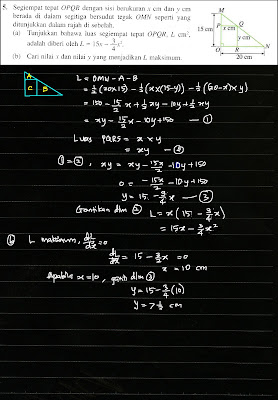 5. Segiempat tepat OPQR dengan sisi berukuran x cm dan y cm
berada di dalam segitiga bersudut tegak OMN seperti yang
ditunjukkan dalam rajah di sebelah.
(a) Tunjukkan bahawa luas segiempat tepat OPQR, L cm²,
adalah diberi oleh L = 15x – 3/4 x².
(b) Cari nilai x dan nilai y yang menjadikan L maksimum.
M
15 cm
P x cm Q
y cm
O R N
20 cm
A
C B
L = OMN - A - B
= ½(20x15) - ½(x)(15-y) - ½(20-x)(y)
= 150 - 15/2 x + ½xy - 10y + ½xy
= xy - 15/2 x - 10y + 150 — ①
Luas PQRS = x × y
= xy — ②
①=②, xy = xy - 15x/2 - 10y + 150
0 = - 15/2 x - 10y + 150
y = 15 - 3/4 x — ③
Gantikan dlm ② L = x(15 - 3/4 x)
= 15x - 3/4 x²
ⓑ L maksimum, dL/dx = 0
dL/dx = 15 - 3/2 x = 0
x = 10 cm
Apabila x = 10, ganti dlm ③
y = 15 - 3/4 (10)
y = 7 ½ cm